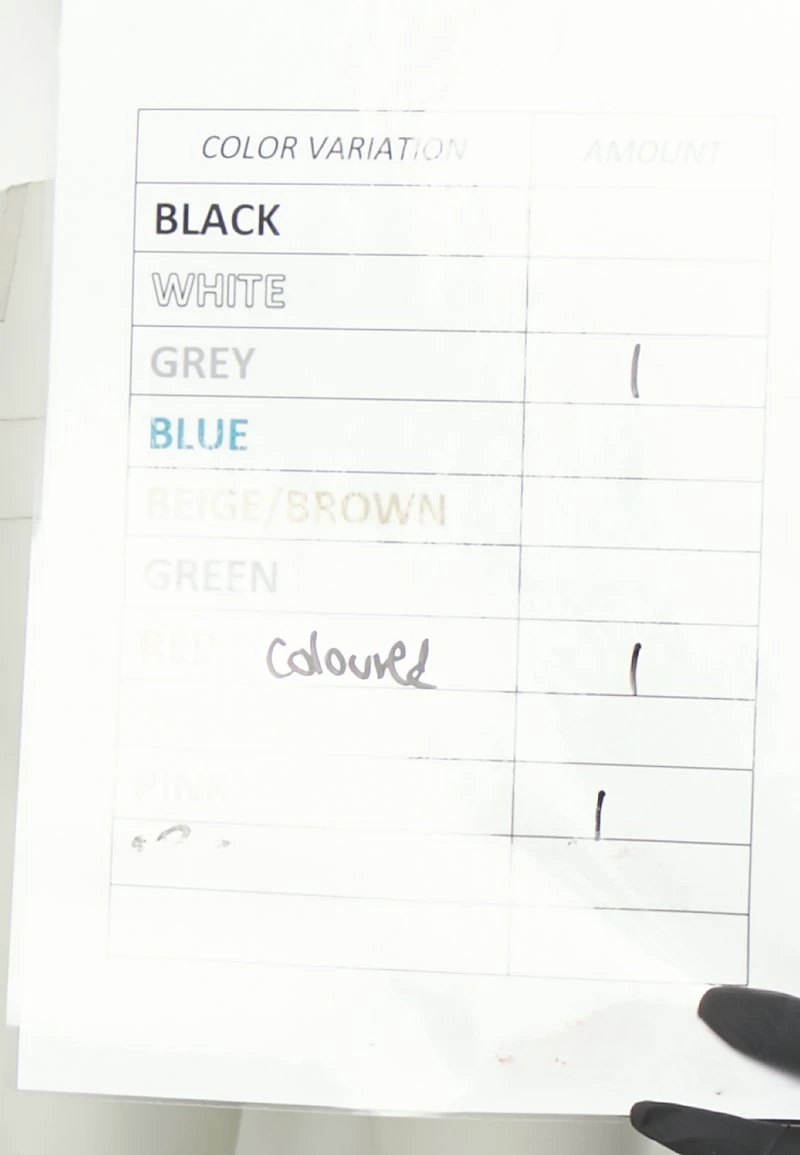 COLOR VARIATION AMOUNT
BLACK
WHITE
GREY 1
BLUE
BEIGE/BROWN
GREEN
RED Coloured 1
PINK 1